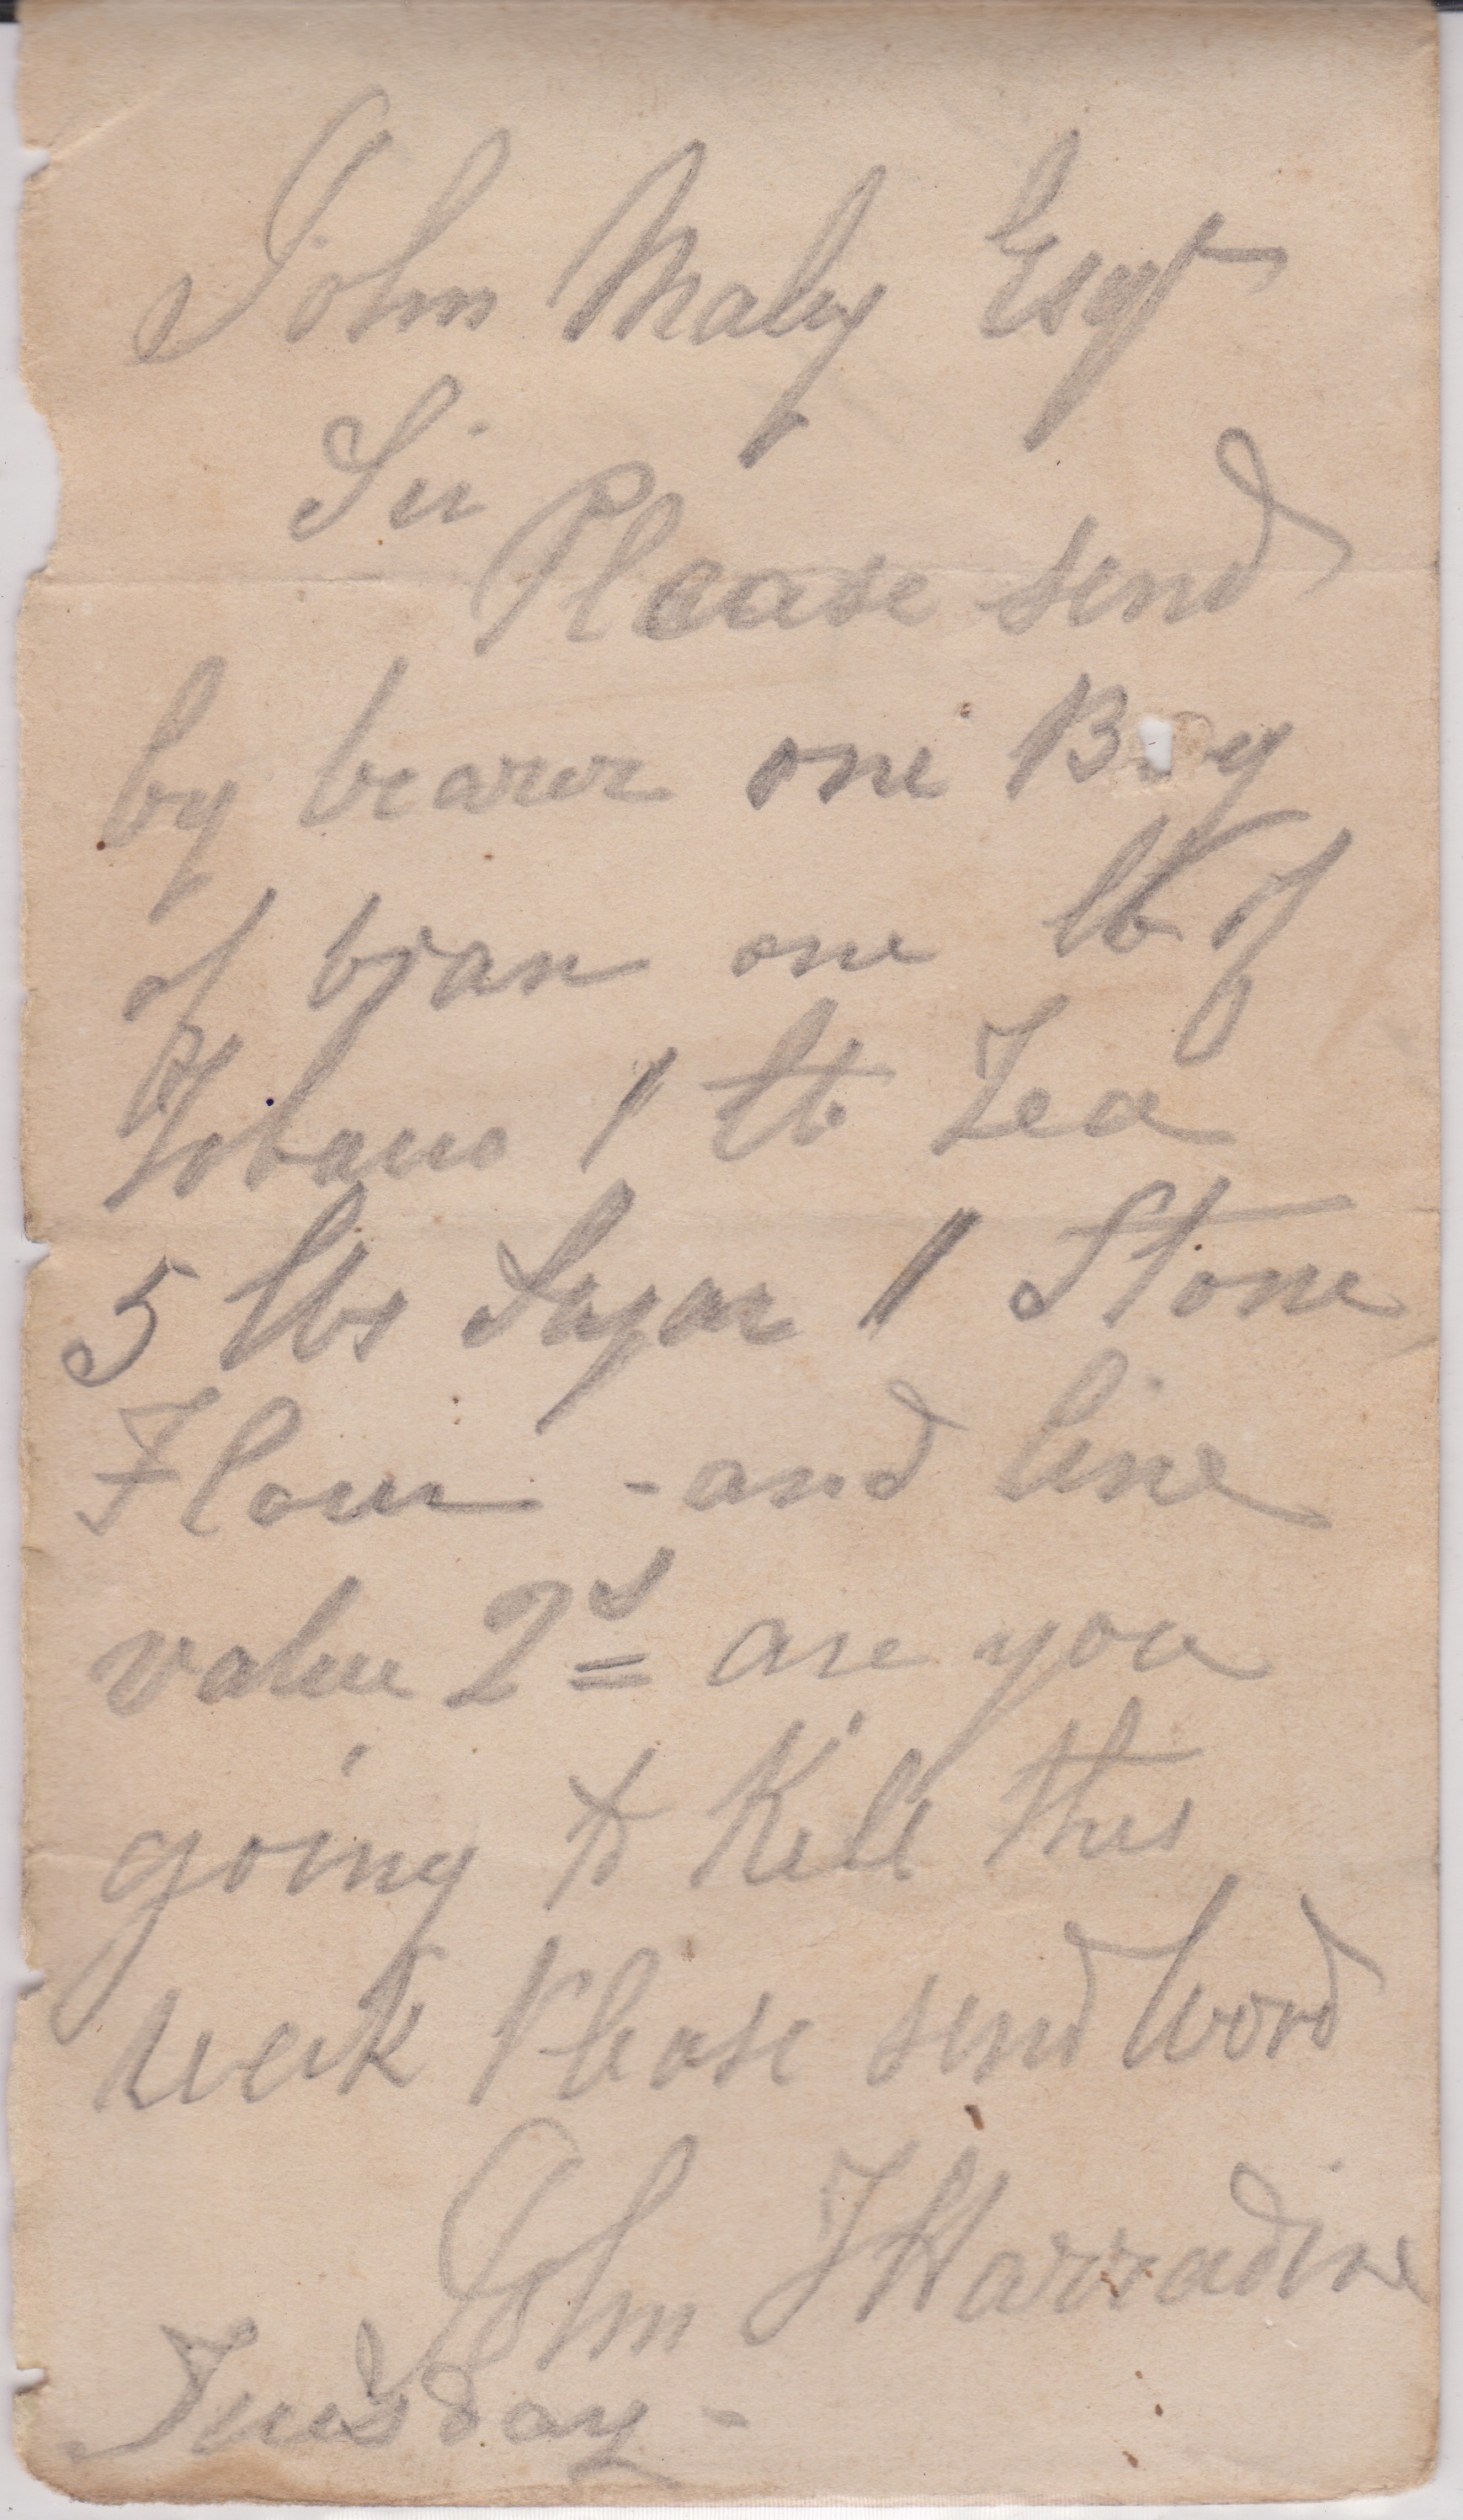 John Maly Esqr
Sir
Please send
by bearer one B g
of bran one lb of
Tobacco 1 lb Tea
5 lbs Sugar 1 Stone
Flour - and line
value 2s are you
going to Kill this
week Please send word
John J Harradine
Tuesday -